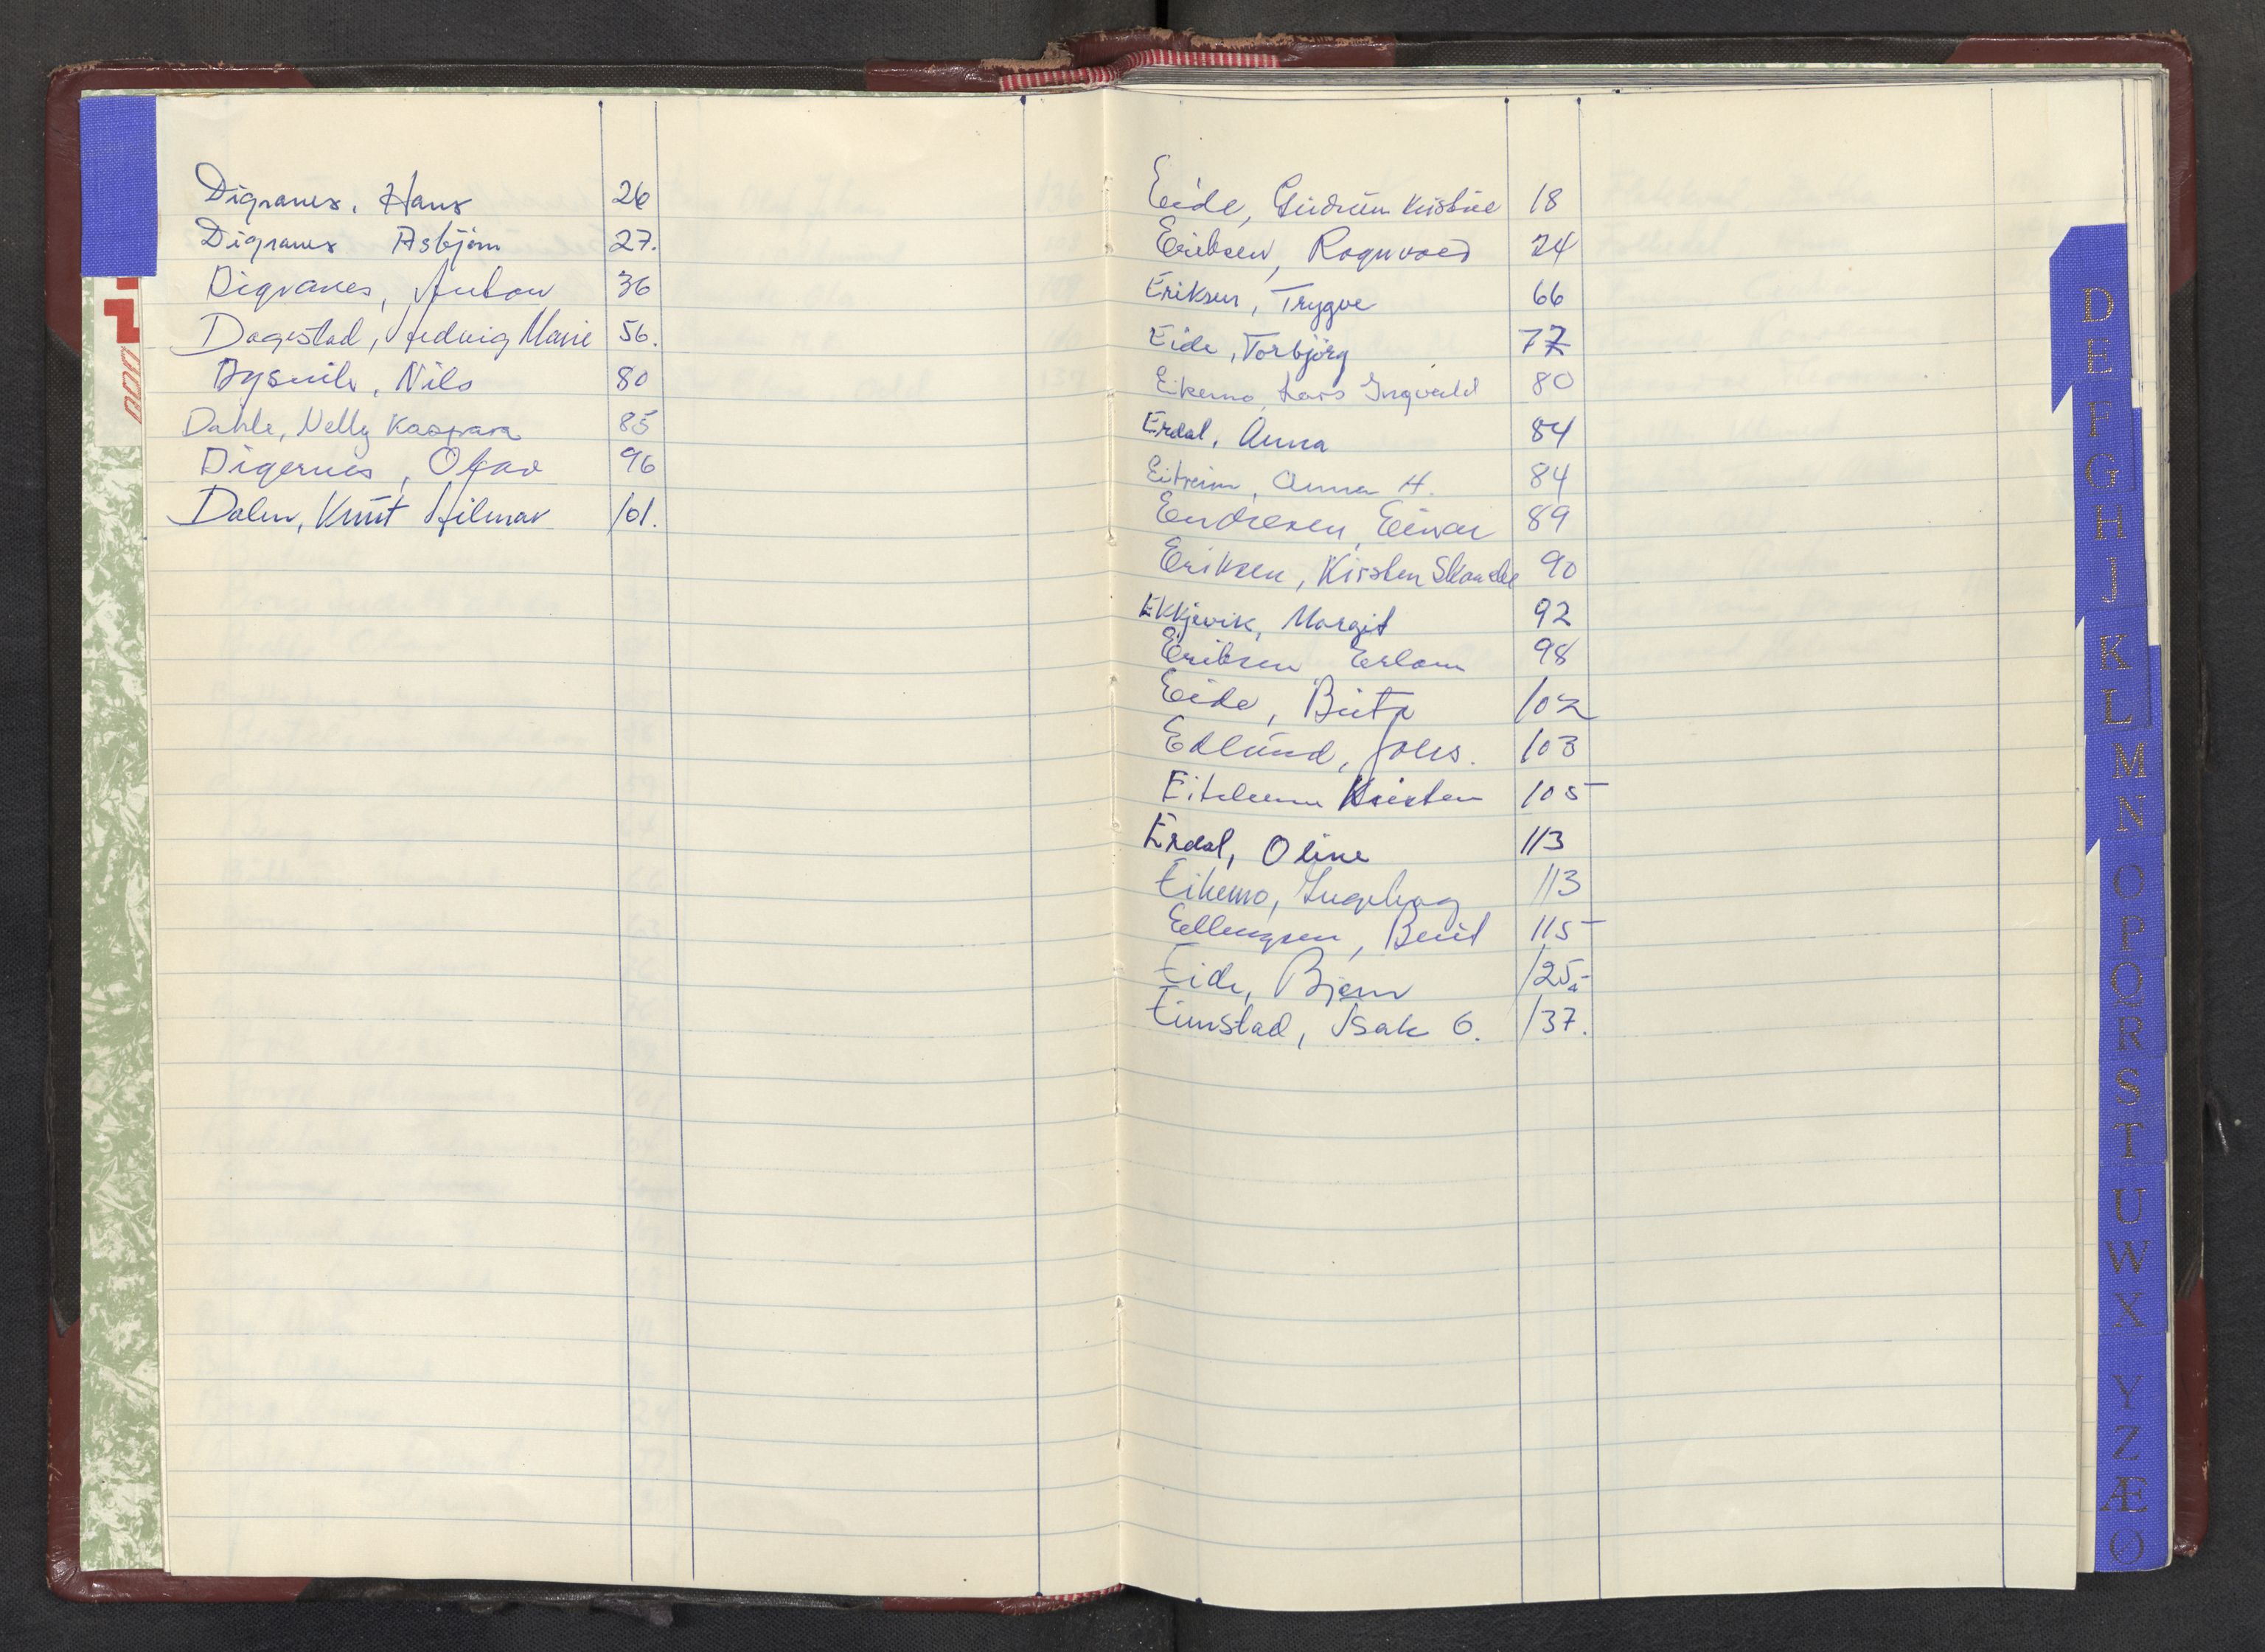 Digranes, Hans 26
Digranes Asbjørn 27.
Digranes, Anton 36
Dagestad, Hedvig Marie 56.
Dysvik, Nils 80
Dahle, Nelly Kaspara 85
Digernes, Olav 96
Dalen, Knut Hilmar 101.
Eide, Gudrun Kristine 18
Eriksen, Ragnvald 24
Eriksen, Trygve 66
Eide, Torbjörg 77
Eikemo, Lars Ingvald 80
Erdal, Anna 84
Eitreim, Anna H. 84
Endresen, Einar 89
Eriksen, Kirsten Skancke 90
Ekkjevik, Margit 92
Eriksen Erling 98
Eide, Brita 102
Edlund, Johs. 103
Kirsten 105
Erdal, Oline 113
Eikemo, Ingeborg 113
Ellingsen, Berit 115
Eide, Bjørn 125a
Eimstad, Isak G. 137.
D
E
F
G
H
J
K
L
M
N
O
P
Q
R
S
T
U
W
X
Y
Z
Æ
Ø